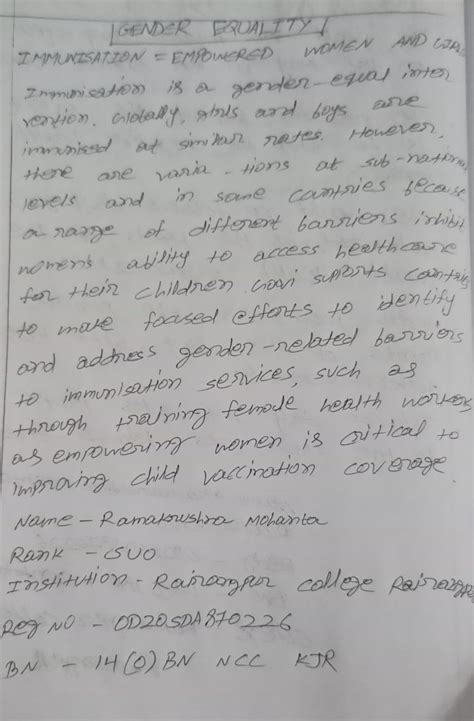 GENDER EQUALITY
IMMUNISATION = EMPOWERED WOMEN AND GIRL
Immunisation is a gender-equal inter
vention. Globally, girls and boys are
immunised at similar rates. However,
there are varia-tions at sub-national
levels and in some countries because
a range of different barriers inhibit
women's ability to access healthcare
for their children. Gavi supports countries
to make focused efforts to identify
and address gender-related barriers
to immunisation services, such as
through training female health workers
as empowering women is critical to
improving child vaccination coverage
Name - Ramakrushna Mohanta
Rank - CSUO
Institution - Rairangpur college Rairangpur
Reg NO - OD20SDA870226
BN - 14(O) BN NCC KJR